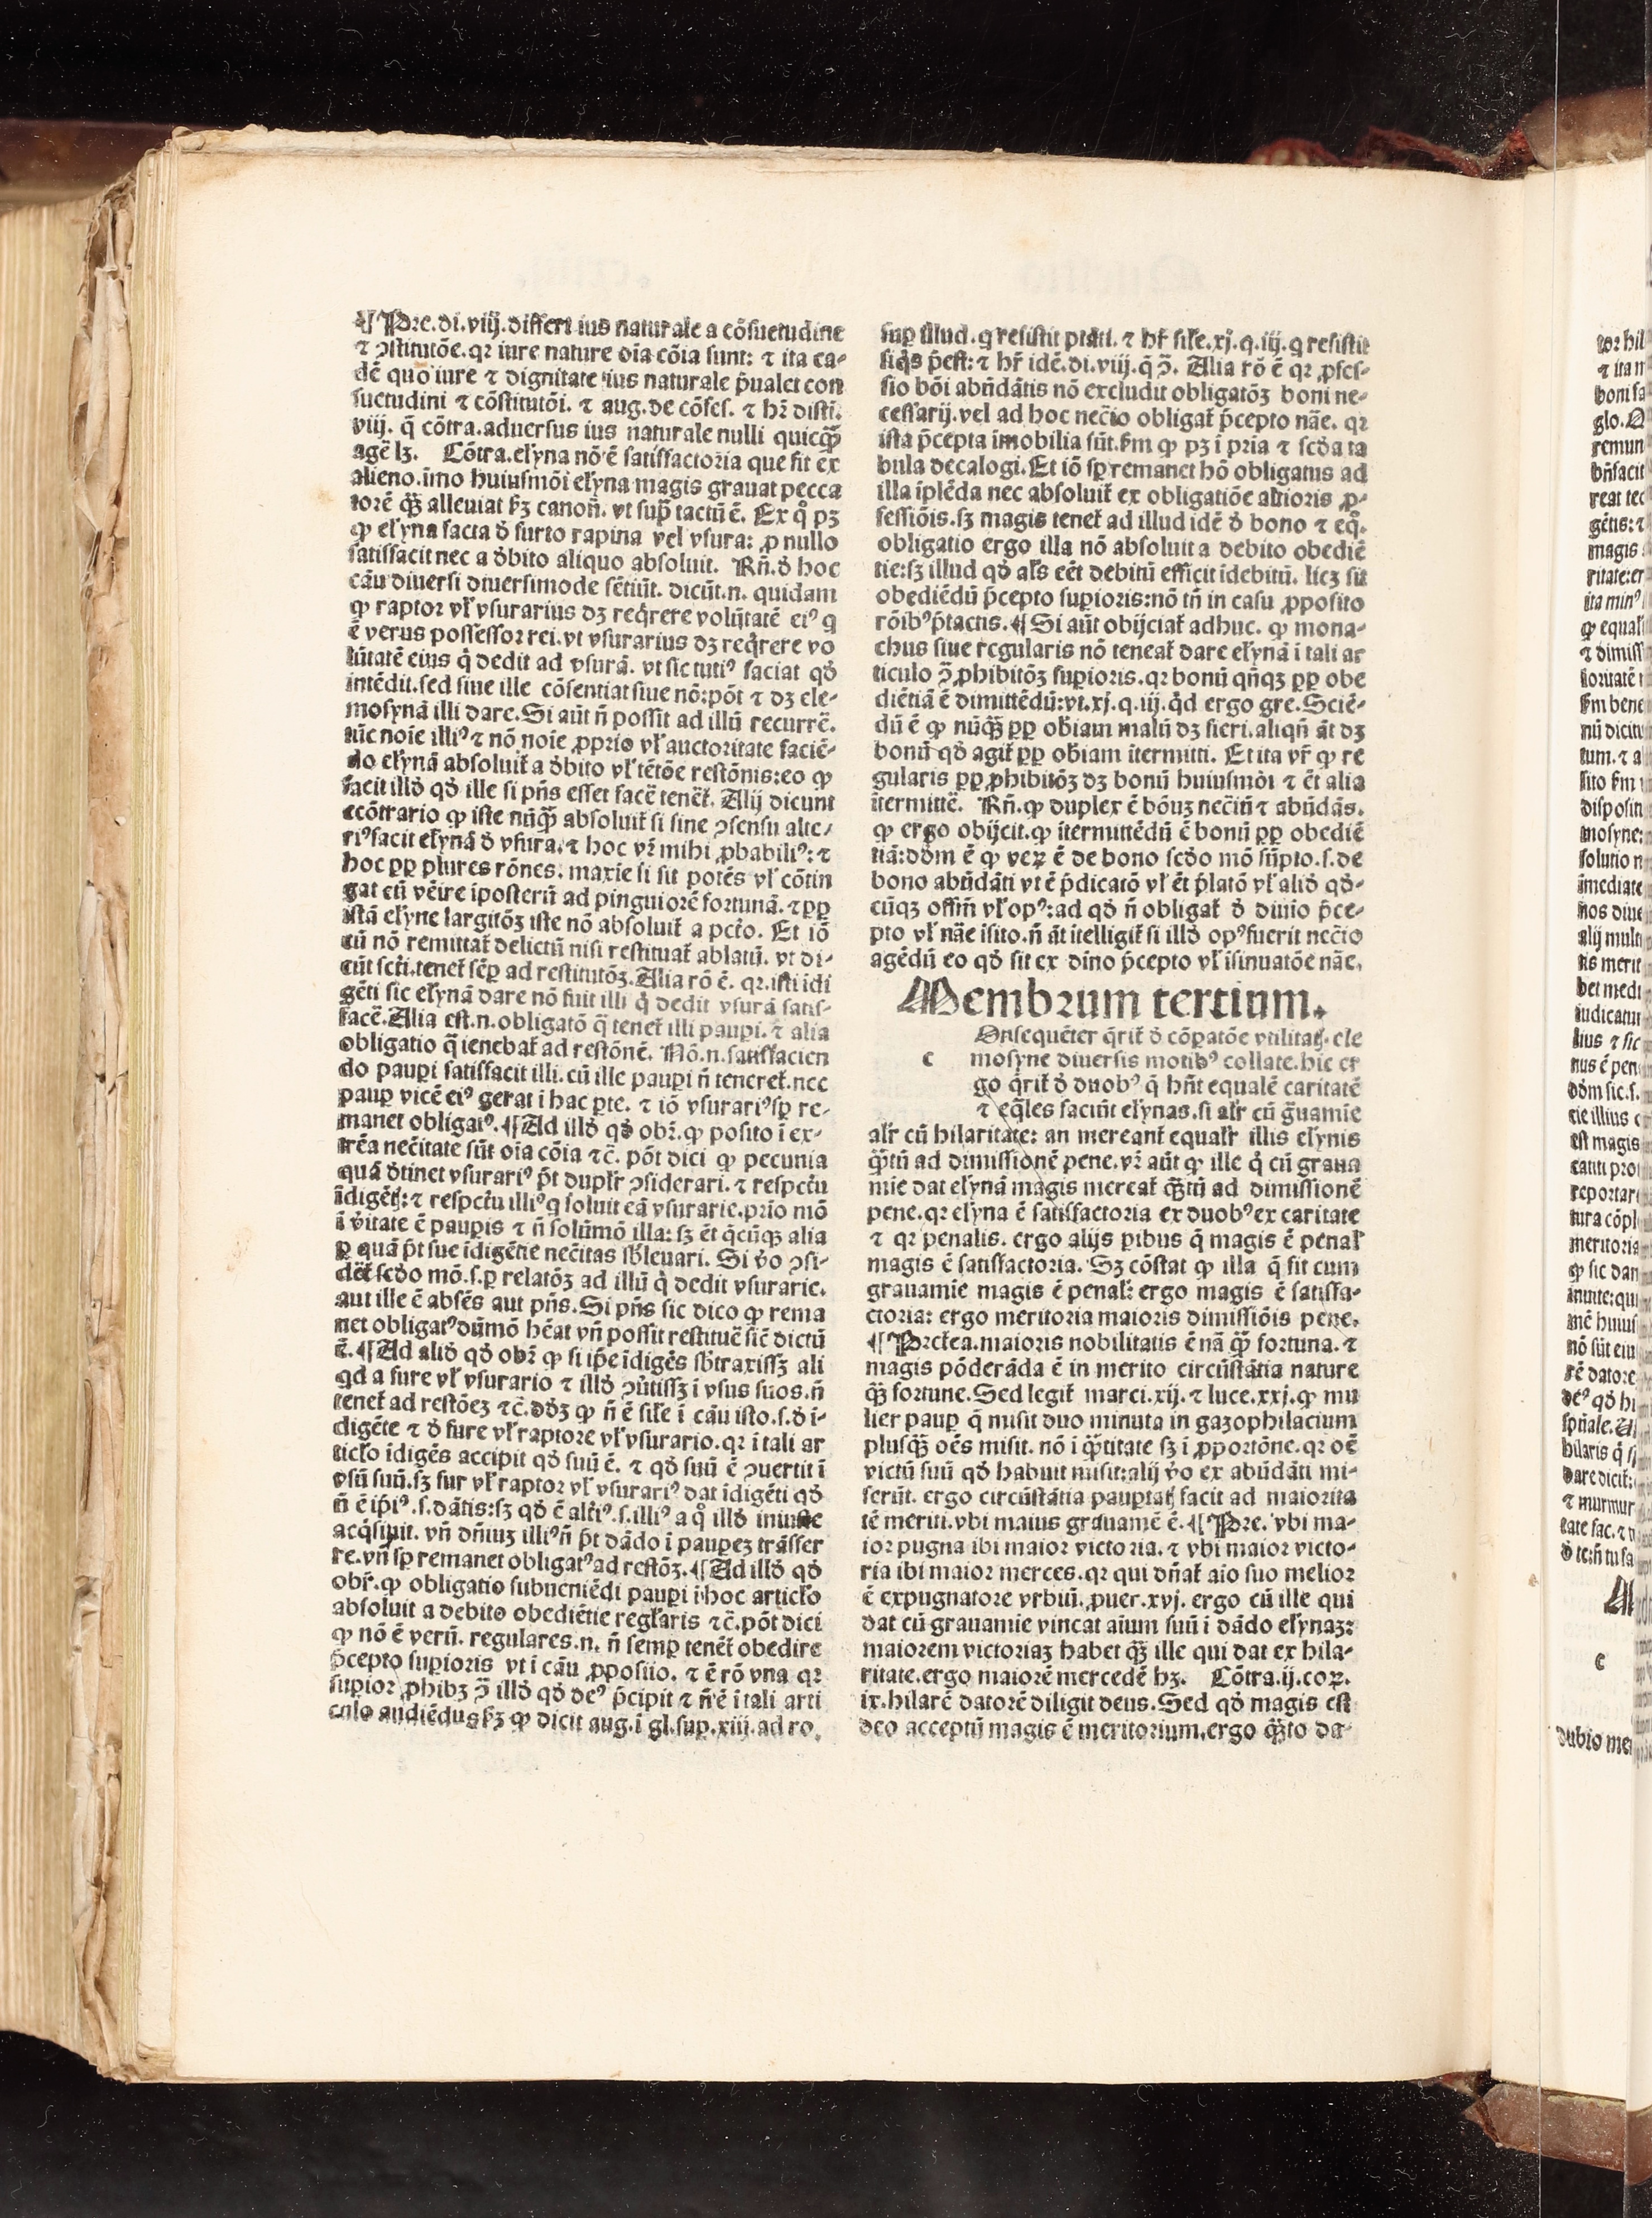 ¶ Pdre.di.viij.differt ius naturale a cōsuetudine
⁊ ↄstitutōe.qꝛ iure nature oīa cōia sunt: ⁊ ita ea-
dē quo iure ⁊ dignitate ius naturale p̄ualet con
suetudini ⁊ cōstitutōi. ⁊ aug.de cōfes. ⁊ hr̄ disti.
viij. q̄ cōtra.aduersus ius naturale nulli quicqꝙ̄
agē lꝫ. Cōtra.elȳna nō ē satisfactoria que fit ex
alieno.imo huiusmōi elȳna magis grauat pecca
torē qꝙ̄ alleuiat ẜꝫ canoñ. vt sup̄ tactū ē. Ex qͦ pꝫ
ꝙ elȳna facta đ furto rapina vel vsura: ꝓ nullo
satisfacit nec a đbito aliquo absoluit. Rñ.đ hoc
cāu diuersi diuersimode sētiūt. dicūt.n. quidam
ꝙ raptor vł vsurarius dꝫ reqͥrere volūtatē ei⁹ q
ē verus possessor rei.vt vsurarius dꝫ reqͥrere vo
lūtatē eius qͥ dedit ad vsurā. vt sic tuti⁹ faciat qđ
intēdit.sed siue ille cōsentiat siue nō:pōt ⁊ dꝫ ele-
mosynā illi dare.Si aūt ñ possit ad illū recurrē.
tūc noīe illi⁹ ⁊ nō noīe ꝓprio vł auctoritate faciē-
do elȳnā absoluit̄ a đbito vł tētōe restōnis:eo ꝙ
facit illđ qđ ille si pñs esset facē tenet̄. Alij dicunt
ecōtrario ꝙ iste nūqꝙ̄ absoluit̄ si sine ↄsensu alte-
ri⁹ facit elȳnā đ vsura.⁊ hoc vr̄ mihi ꝓbabili⁹: ⁊
hoc ꝓꝑ plures rōnes: maxīe si sit potēs vł cōtin
gat eū vēire īposterū ad pinguiorē fortunā. ⁊ ꝓꝑ
istā elȳne largitōꝫ iste nō absoluit̄ a pctō. Et iō
cū nō remittat̄ delictū nisi restituat̄ ablatū. vt di-
cūt scti.tenet̄ sēꝑ ad restitutōꝫ.Alia rō ē. qꝛ.isti īdi
gēti sic elȳnā dare nō fuit illi qͥ dedit vsurā satis-
facē.Alia est.n.obligatō q̄ tenet̄ illi pauꝑi. ⁊ alia
obligatio q̄ tenebat̄ ad restōnē. Nō.n.satisfacien
do pauꝑi satisfacit illi.cū ille pauꝑi ñ teneret̄.nec
pauꝑ vicē ei⁹ gerat ī hac ꝑte. ⁊ iō vsurari⁹ sꝑ re-
manet obligat⁹.¶ Ad illđ qđ obr̄.ꝙ posito ī ex-
trēa necītate sūt oīa cōia ⁊c̄. pōt dici ꝙ pecunia
quā đtinet vsurari⁹ p̄t duplr̄ ↄsiderari. ⁊ respctu
īdigētꝭ: ⁊ respctu illi⁹ q soluit eā vsurarie.prīo mō
ī v̄itate ē pauꝑis ⁊ ñ solūmō illa: sꝫ ēt qͥcūqꝫ alia
ꝑ quā p̄t sue īdigētie necītas sb̄leuari. Si v̄o ↄsi-
det̄ scđo mō.s.ꝑ relatōꝫ ad illū qͥ dedit vsurarie.
aut ille ē absēs aut pñs.Si pñs sic dico ꝙ rema
net obligat⁹ dūmō hēat vñ possit restituē sic̄ dictū
ē.¶ Ad aliđ qđ obr̄ ꝙ si ip̄e īdigēs sb̄traxissꝫ ali
qd a fure vł vsurario ⁊ illđ ↄūtissꝫ ī vsus suos.ñ
tenet̄ ad restōeꝫ ⁊c̄.đđꝫ ꝙ ñ ē siłe ī cāu isto.s.đ ī-
digēte ⁊ đ fure vł raptore vł vsurario.qꝛ ī tali ar
ticlo īdigēs accipit qđ suū ē. ⁊ qđ suū ē ↄuertit ī
vsū suū.sꝫ fur vł raptor vł vsurari⁹ dat īdigēti qđ
ñ ē ip̄i⁹.s.dātis:sꝫ qđ ē alti⁹.s.illi⁹ a qͦ illđ iniuste
acqͥsiuit. vñ dñiuꝫ illi⁹ ñ p̄t dādo ī pauꝑeꝫ trāsfer
re.vñ sꝑ remanet obligat⁹ ad restōꝫ.¶ Ad illđ qđ
obr̄.ꝙ obligatio subueniēdi pauꝑi ī hoc articlo
absoluit a debito obediētie regłaris ⁊c̄.pōt dici
ꝙ nō ē verū. regulares.n. ñ semꝑ tenet̄ obedire
p̄cepto suꝑioris vt ī cāu ꝓposito. ⁊ ē rō vna qꝛ
suꝑior ꝓhibꝫ ↄ̄ illđ qđ de⁹ p̄cipit ⁊ ñ ē ī tali arti
culo audiēdus ẜꝫ ꝙ dicit aug.ī gl.suꝑ.xiij.ad ro.
suꝑ illud.q resistit ptāti. ⁊ hr̄ siłe.xj.q.iij.q resistit
siqͥs p̄est: ⁊ hr̄ idē.di.viij.q̄ ↄ̄. Alia rō ē qꝛ ꝓfes-
sio bōi abūdātis nō excludit obligatōꝫ boni ne-
cessarij.vel ad hoc nec̄io obligat̄ p̄cepto nāe. qꝛ
ista p̄cepta īmobilia sūt.ẜm ꝙ pꝫ ī pria ⁊ scđa ta
bula decalogi.Et iō sꝑ remanet hō obligatus ad
illa īplēda nec absoluit̄ ex obligatiōe altioris ꝓ-
fessiōis.sꝫ magis tenet̄ ad illud idē đ bono ⁊ eqͦ.
obligatio ergo illa nō absoluit a debito obediē
tie:sꝫ illud qđ ałs eēt debitū efficit īdebitū. licꝫ sit
obediēdū p̄cepto suꝑioris:nō tñ in casu ꝓposito
rōib⁹ p̄tactis.¶ Si aūt obijciat̄ adhuc. ꝙ mona-
chus siue regularis nō teneat̄ dare elȳnā ī tali ar
ticulo ↄ̄ ꝓhibitōꝫ suꝑioris.qꝛ bonū qñqꝫ ꝓꝑ obe
diētiā ē dimittēdū:vt.xj.q.iij.qͥd ergo gre.Sciē-
dū ē ꝙ nūqꝙ̄ ꝓꝑ obīam malū dꝫ fieri.aliqñ āt dꝫ
bonū qđ agit̄ ꝓꝑ obīam ītermitti. Et ita vr̄ ꝙ re
gularis ꝓꝑ ꝓhibitōꝫ dꝫ bonū huiusmōi ⁊ ēt alia
ītermittē. Rñ.ꝙ duplex ē bōuꝫ nec̄iū ⁊ abūdās.
ꝙ ergo obijcit.ꝙ ītermittēdū ē bonū ꝓꝑ obediē
tiā:dđm ē ꝙ veꝝ ē de bono scđo mō sūpto.s.de
bono abūdāti vt ē p̄dicatō vł ēt p̄latō vł aliđ qđ-
cūqꝫ offm̄ vł op⁹:ad qđ ñ obligat̄ đ diuīo p̄ce-
pto vł nāe īsito.ñ āt ītelligit̄ si illđ op⁹ fuerit nec̄io
agēdū eo qđ sit ex dīno p̄cepto vł īsinuatōe nāe.
Membrum tertium.
Onsequēter qͥrit̄ đ cōꝑatōe vtilitatꝭ ele
c mosyne diuersis motib⁹ collate.hic er
go qͥrit̄ đ duob⁹ q̄ hñt equalē caritatē
⁊ eq̄les faciūt elȳnas.si alr̄ cū g̈uamīe
alr̄ cū hilaritate: an mereant̄ equalr̄ illis elȳnis
qꝙ̄tū ad dimissionē pene.vr̄ aūt ꝙ ille qͥ cū graua
mīe dat elȳnā magis mereat̄ qꝙ̄tū ad dimissionē
pene.qꝛ elȳna ē satisfactoria ex duob⁹ ex caritate
⁊ qꝛ penalis. ergo alijs ꝑibus q̄ magis ē penał
magis ē satisfactoria. Sꝫ cōstat ꝙ illa q̄ fit cum
grauamīe magis ē penał: ergo magis ē satisfa-
ctoria: ergo meritoria maioris dimissiōis pene.
¶ Pretea.maioris nobilitatis ē nā qꝙ̄ fortuna. ⁊
magis pōderāda ē in merito circūstātia nature
qꝙ̄ fortune.Sed legit̄ marci.xij. ⁊ luce.xxj.ꝙ mu
lier pauꝑ q̄ misit duo minuta in gazophilacium
plusqꝙ̄ oēs misit. nō ī qꝙ̄titate sꝫ ī ꝓportōne.qꝛ oē
victū suū qđ habuit misit:alij v̄o ex abūdāti mi-
serūt. ergo circūstātia pauꝑtatꝭ facit ad maiorita
tē meriti.vbi maius grauamē ē.¶ Pdre. vbi ma-
ior pugna ibi maior victoria. ⁊ vbi maior victo-
ria ibi maior merces.qꝛ qui dñat̄ aīo suo melior
ē expugnatore vrbiū.ꝓuer.xvj. ergo cū ille qui
dat cū grauamīe vincat aīum suū ī dādo elȳnaꝫ:
maiorem victoriaꝫ habet qꝙ̄ ille qui dat ex hila-
ritate.ergo maiorē mercedē hꝫ. Cōtra.ij.coꝝ.
ix.hilarē datorē diligit deus.Sed qđ magis est
deo acceptū magis ē meritorium.ergo qꝙ̄to da-